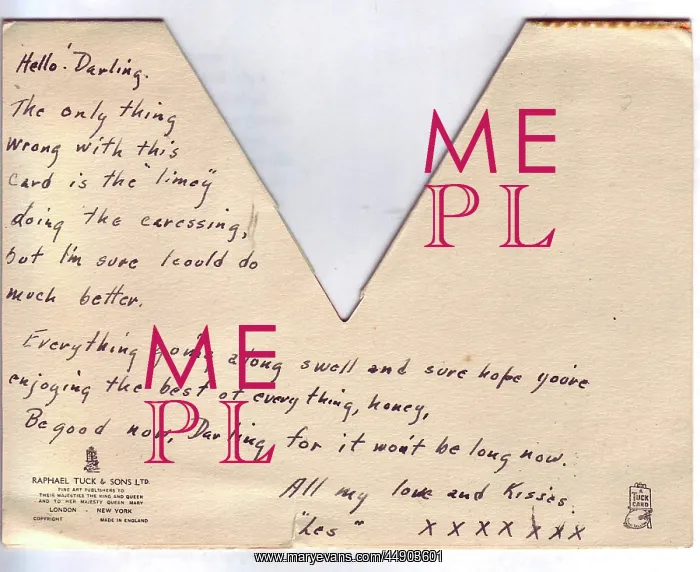 Hello! Darling.
The only thing
wrong with this
card is the "limey"
doing the caressing,
but I'm sure I could do
much better.
Everything going along swell and sure hope you're
enjoying the best of everything, honey,
Be good now, Darling for it won't be long now.
All my love and Kisses.
"Les" X X X X X X X
RAPHAEL TUCK & SONS LTD.
FINE ART PUBLISHERS TO
THEIR MAJESTIES THE KING AND QUEEN
AND TO HER MAJESTY QUEEN MARY
LONDON - NEW YORK
COPYRIGHT MADE IN ENGLAND
A
TUCK
CARD
ME
PL
ME
PL
www.maryevans.com/44903601